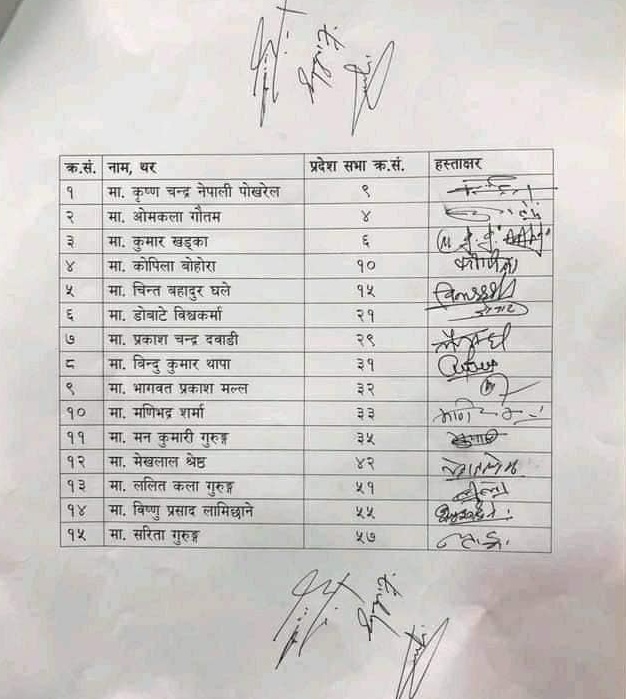 क्र.सं. नाम, थर प्रदेश सभा क्र.सं. हस्ताक्षर
१ मा. कृष्ण चन्द्र नेपाली पोखरेल ९
२ मा. ओमकला गौतम ४
३ मा. कुमार खड्का ६
४ मा. कोपिला बोहोरा १०
५ मा. चिन्त बहादुर घले १५
६ मा. डोबाटे विश्वकर्मा २१
७ मा. प्रकाश चन्द्र दवाडी २९
८ मा. बिन्दु कुमार थापा ३१
९ मा. भागवत प्रकाश मल्ल ३२
१० मा. मणिभद्र शर्मा ३३
११ मा. मन कुमारी गुरुङ्ग ३५
१२ मा. मेखलाल श्रेष्ठ ४२
१३ मा. ललित कला गुरुङ्ग ५१
१४ मा. विष्णु प्रसाद लामिछाने ५५
१५ मा. सरिता गुरुङ्ग ५७